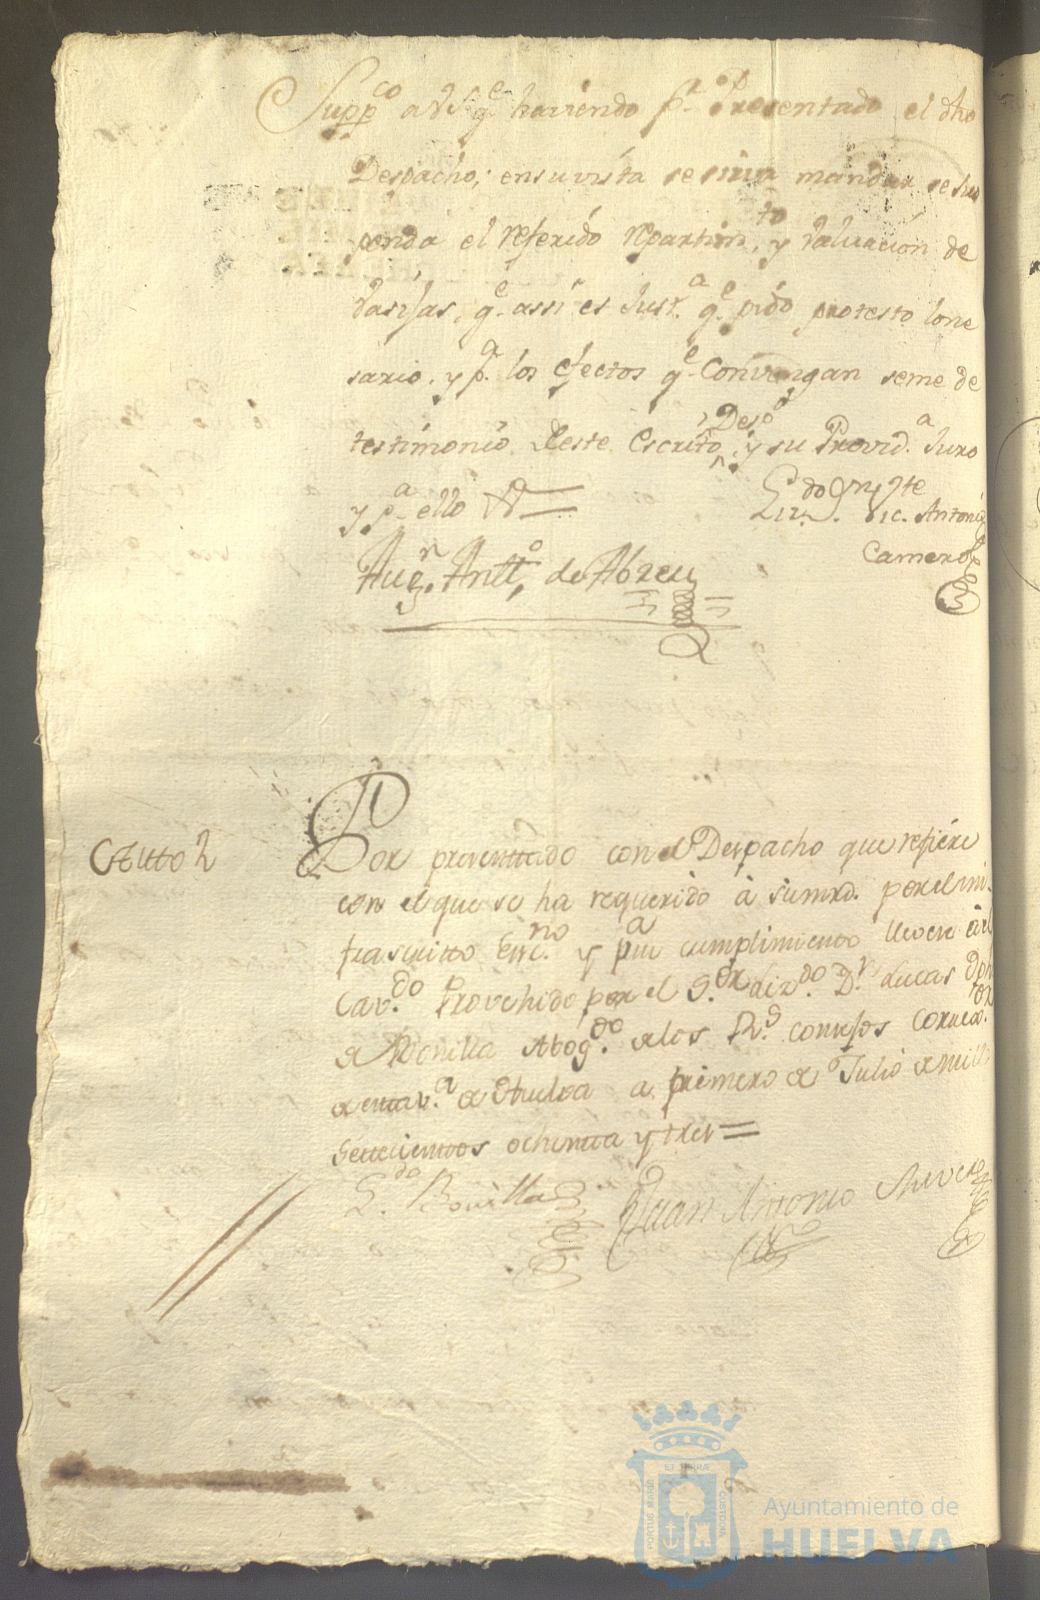 Supp.co a V.S. q.e haviendo p.r Presentado el dho
Despacho; en su vista se sirva mandar se sus
penda el referido repartim.to y valuacion de
vasijas, q.e assi es Just.a q.e pido protesto lone
sario, y p.a los efectos q.e Convengan se me de
testimonio deste escrito, Desp.o y su Provid.a Juro
y p.a ello &.a
Antonio
Camero
Aug.n Ant.o de Abreu
Autto
Por presenttado con el Despacho que refiere
con el que se ha requerido â su mrd. por el in
frascritto Ess.no y p.a su cumplimiento
Provehido por el S.or Liz.do D.n Lucas
de Bonilla Abog.do de los R.s consejos Correx.or
de esta v.a de Huelva a primero de Julio de mill
Settecientos ochenta y tres =
L.do Bonilla Juan Antonio
PORTUS MARIS
ET TERRÆ
CUSTODIA
Ayuntamiento de
HUELVA